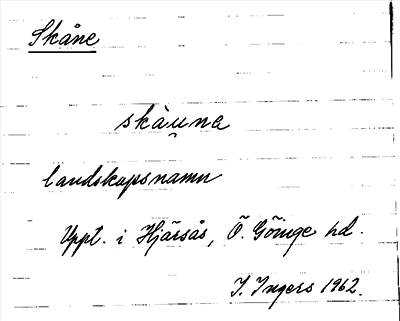 Skåne
skàu̯na
landskapsnamn
Uppt. i Hjärsås, Ö. Göinge hd.
I. Ingers 1962.